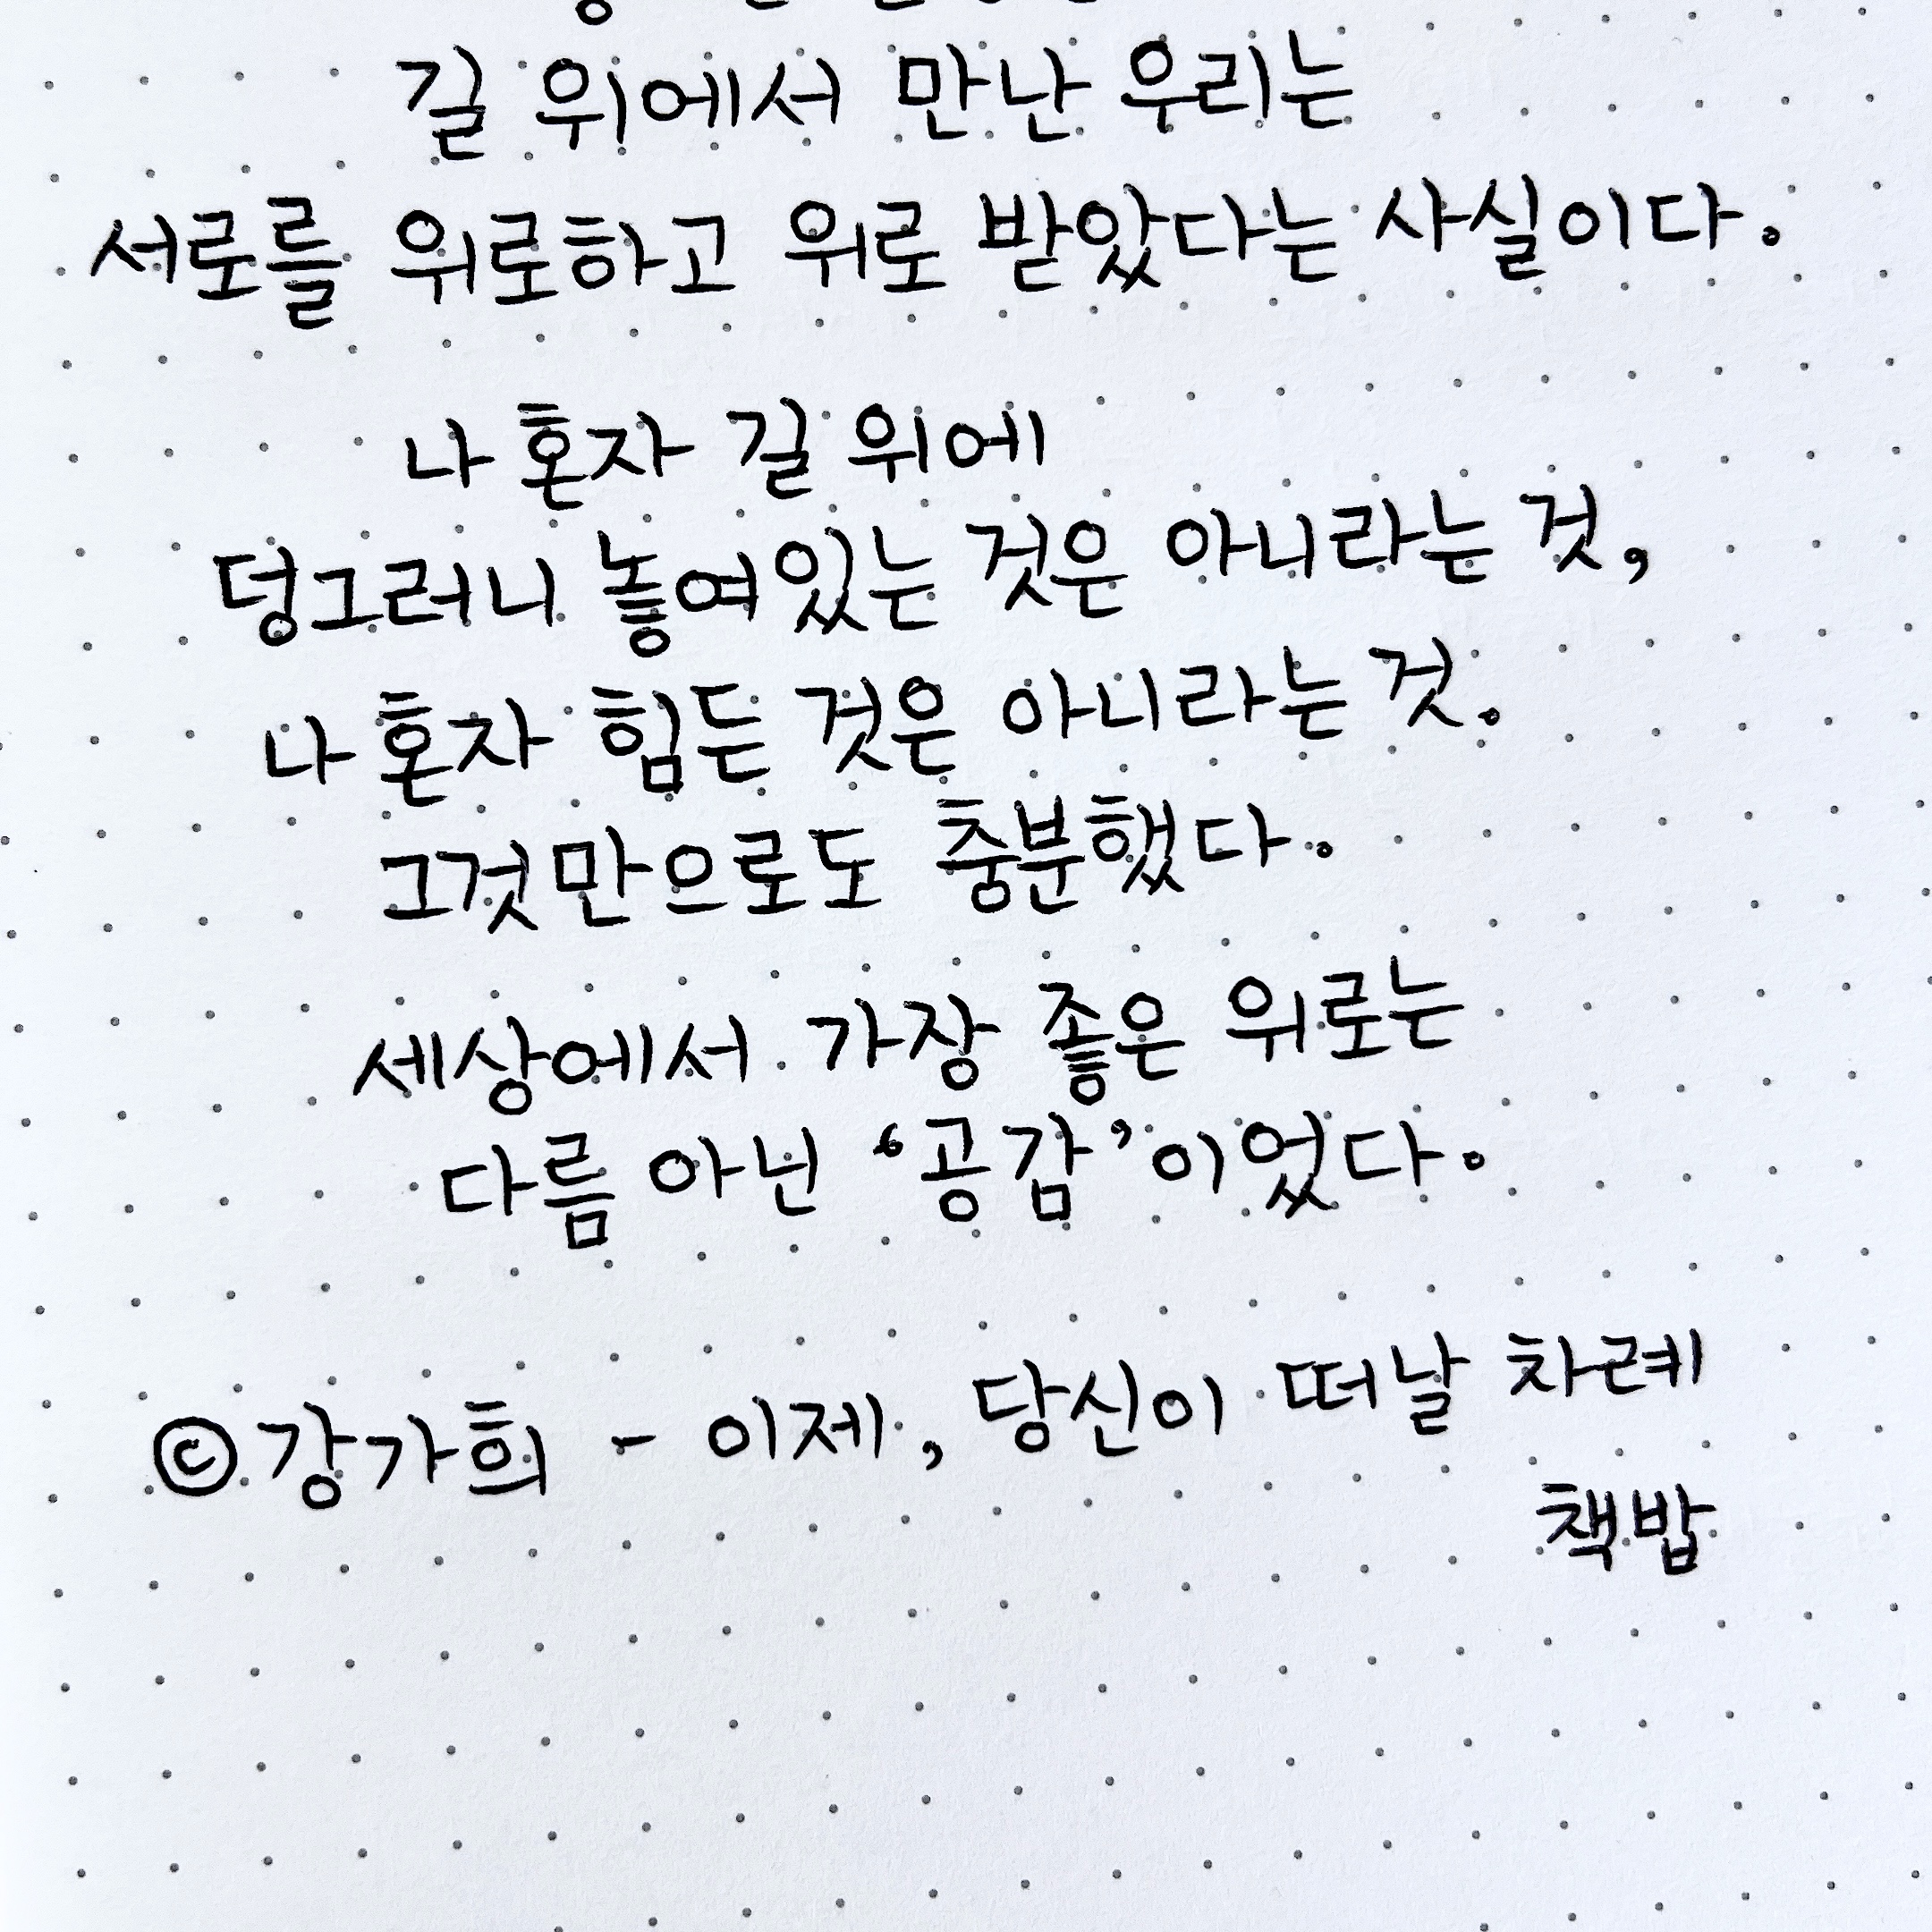 길 위에서 만난 우리는
서로를 위로하고 위로 받았다는 사실이다.
나 혼자 길 위에
덩그러니 놓여있는 것은 아니라는 것,
나 혼자 힘든 것은 아니라는 것.
그것만으로도 충분했다.
세상에서 가장 좋은 위로는
다름 아닌 '공감'이었다.
©강가희 - 이제, 당신이 떠날 차례
책밥